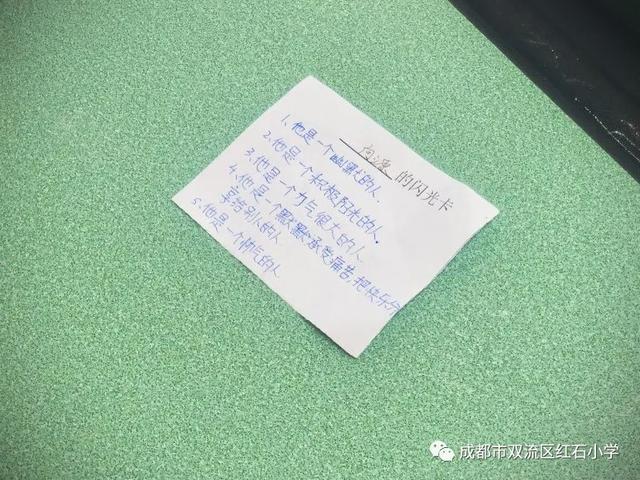 的闪光卡
1、他是一个幽默的人.
2、他是一个积极阳光的人.
3、他是一个力气很大的人
4、他是一个默默承受痛苦,把快乐分
享给别人的人
5、他是一个帅气的人
成都市双流区红石小学